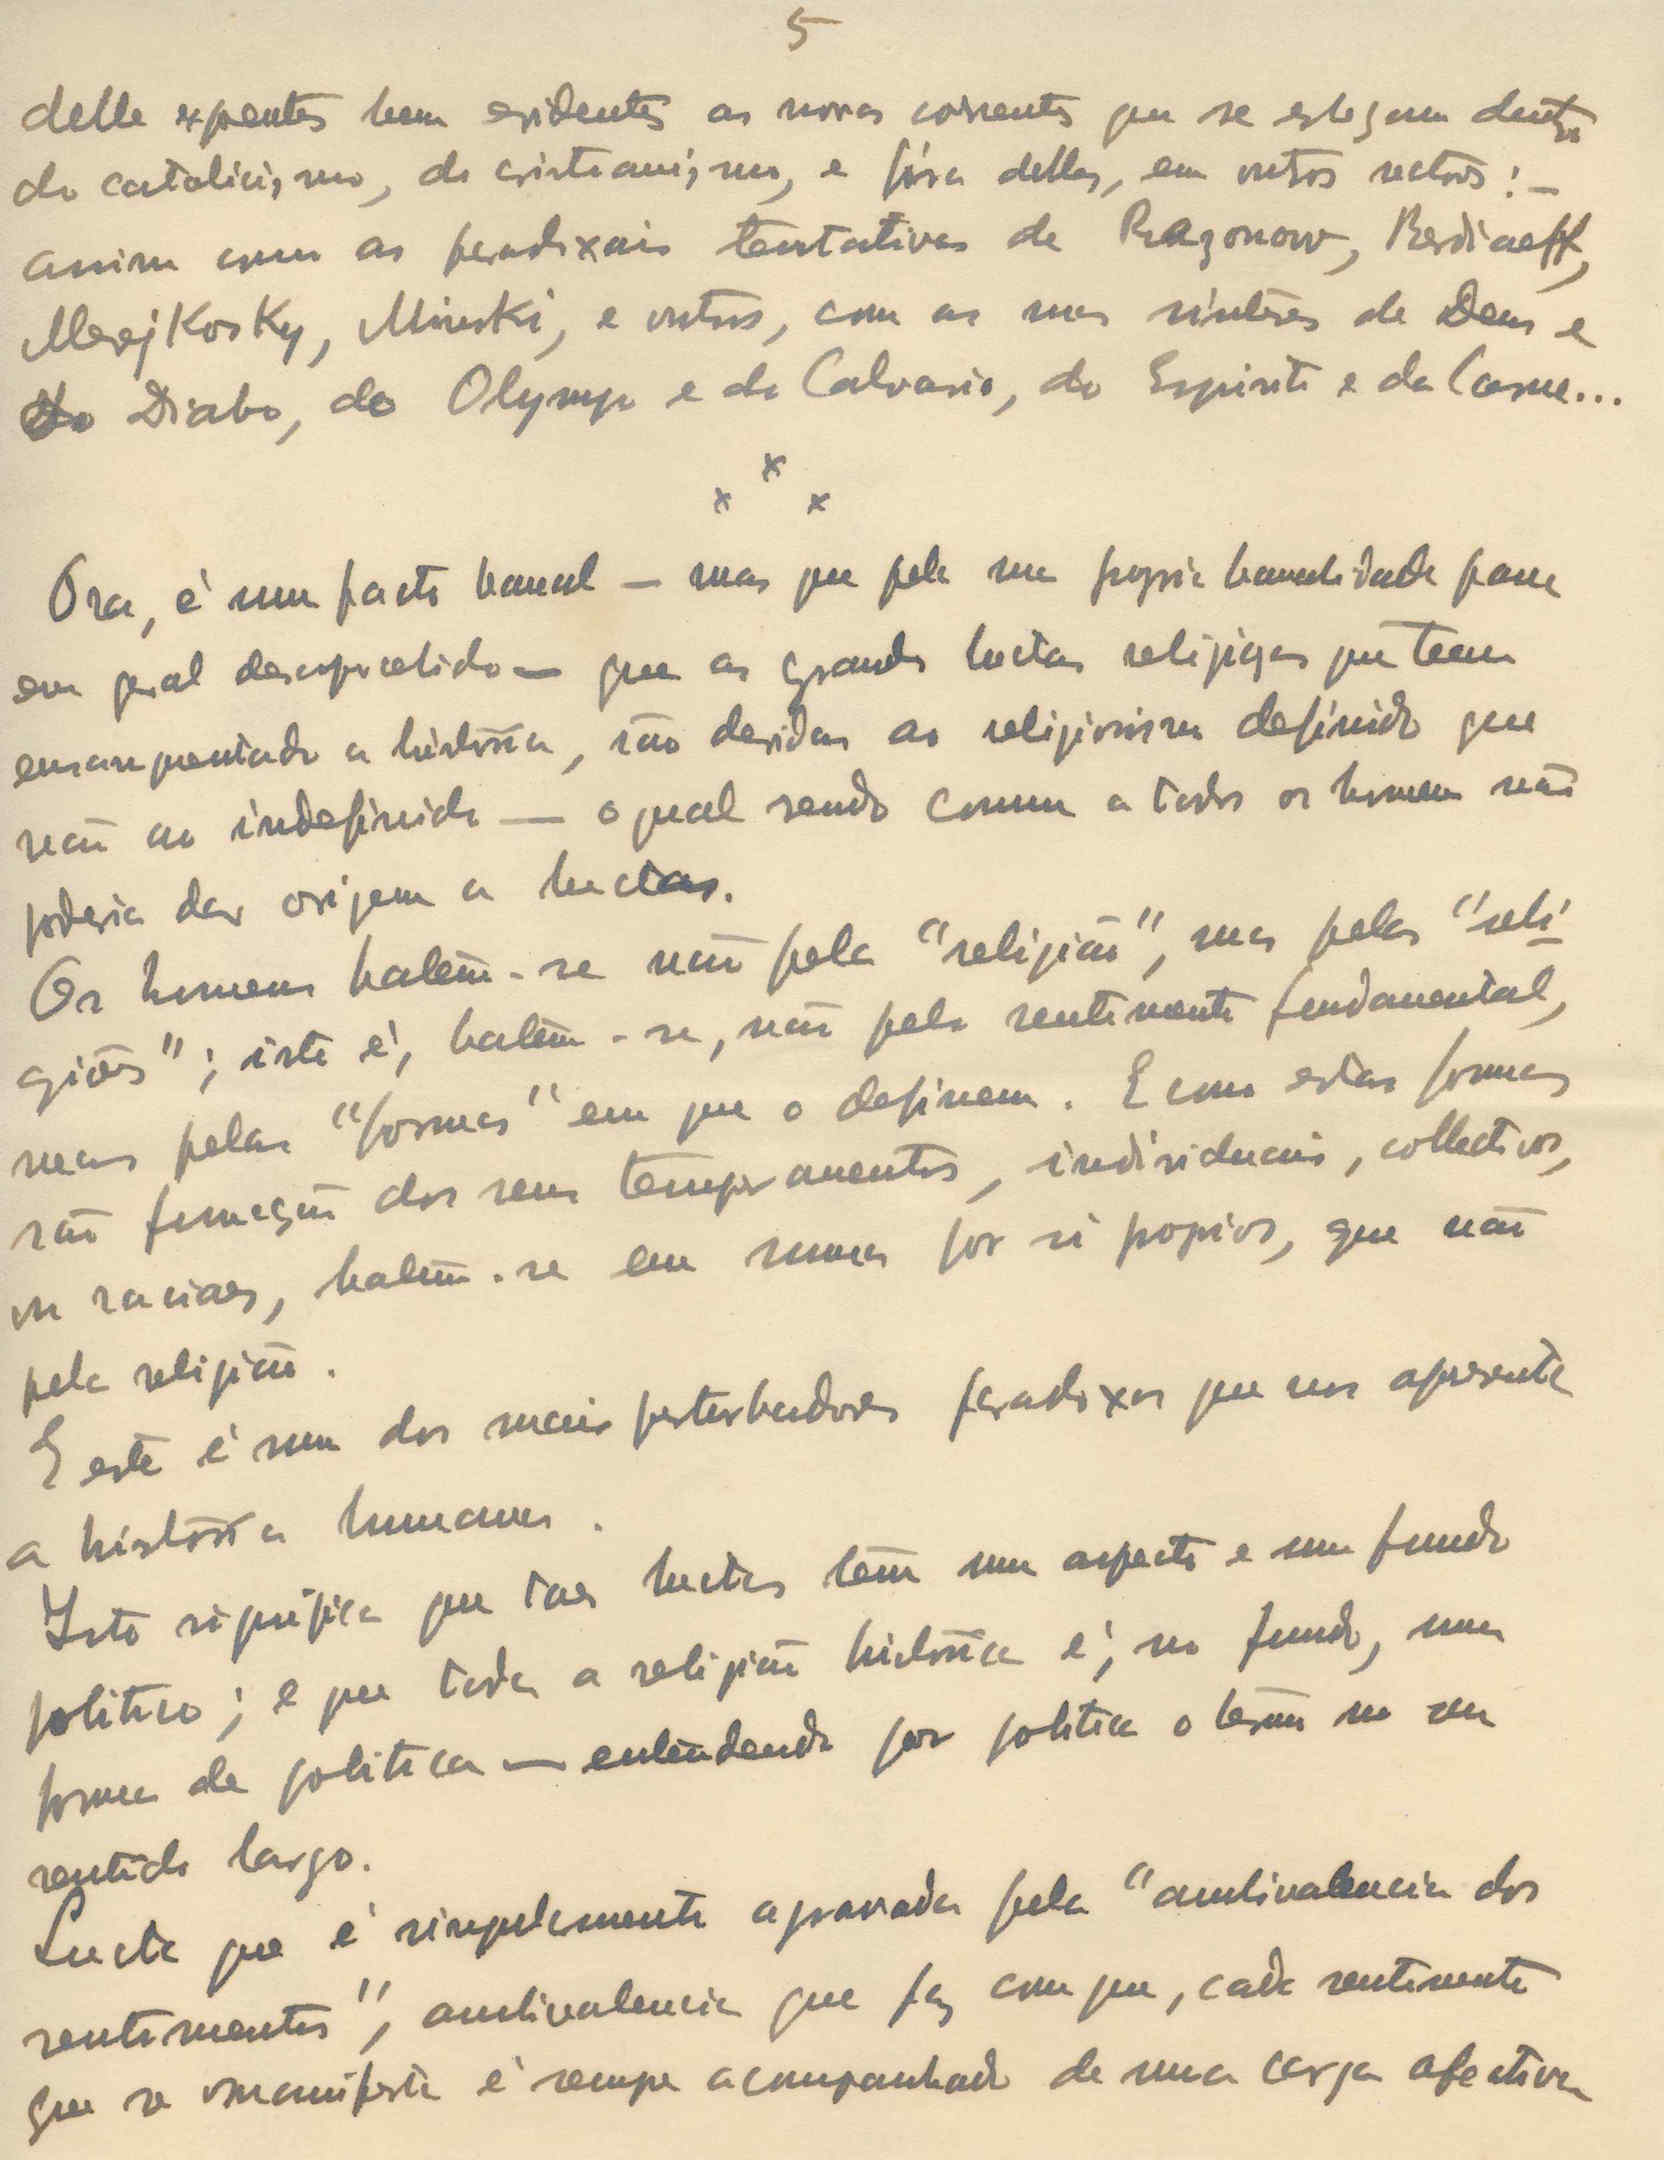 5
delle expoentes bem evidentes as novas correntes que se esboçam dentro
do catolicismo, do cristianismo, e fóra delles, em outros sectores: –
assim como as paradoxais tentativas de Razonow, Berdiaeff,
Merejkosky, Minski, e outros, com as suas sinteses de Deus e
do Diabo, do Olympo e do Calvario, do Espirito e da Carne...
x x x
Ora, é um facto banal – mas que pela sua propria banalidade passa
em geral desapercebido – que as grandes luctas religiosas que teem
ensanguentado a história, são devidas ao religiosismo definido que
não ao indefinido – o qual sendo comum a todos os homens não
poderia dar origem a luctas.
Os homens batem-se não pela "religião", mas pelas "reli-
giões"; isto é, batem-se, não pelo sentimento fundamental,
mas pelas "formas" em que o definem. E como estas formas
são funcção dos seus temperamentos, individuais, collectivos,
ou raciaes, batem-se em suma por si proprios, que não
pela religião.
E este é um dos mais perturbadores paradoxos que nos apresenta
a história humana.
Isto significa que taes luctas têm um aspecto e um fundo
politico; e que toda a religião histórica é, no fundo, uma
forma de politica – entendendo por politica o termo no seu
sentido largo.
Lucta que é singularmente agravada pela "ambivalencia dos
sentimentos", ambivalencia que faz com que, cada sentimento
que se manifesta é sempre acompanhado de uma carga afectiva